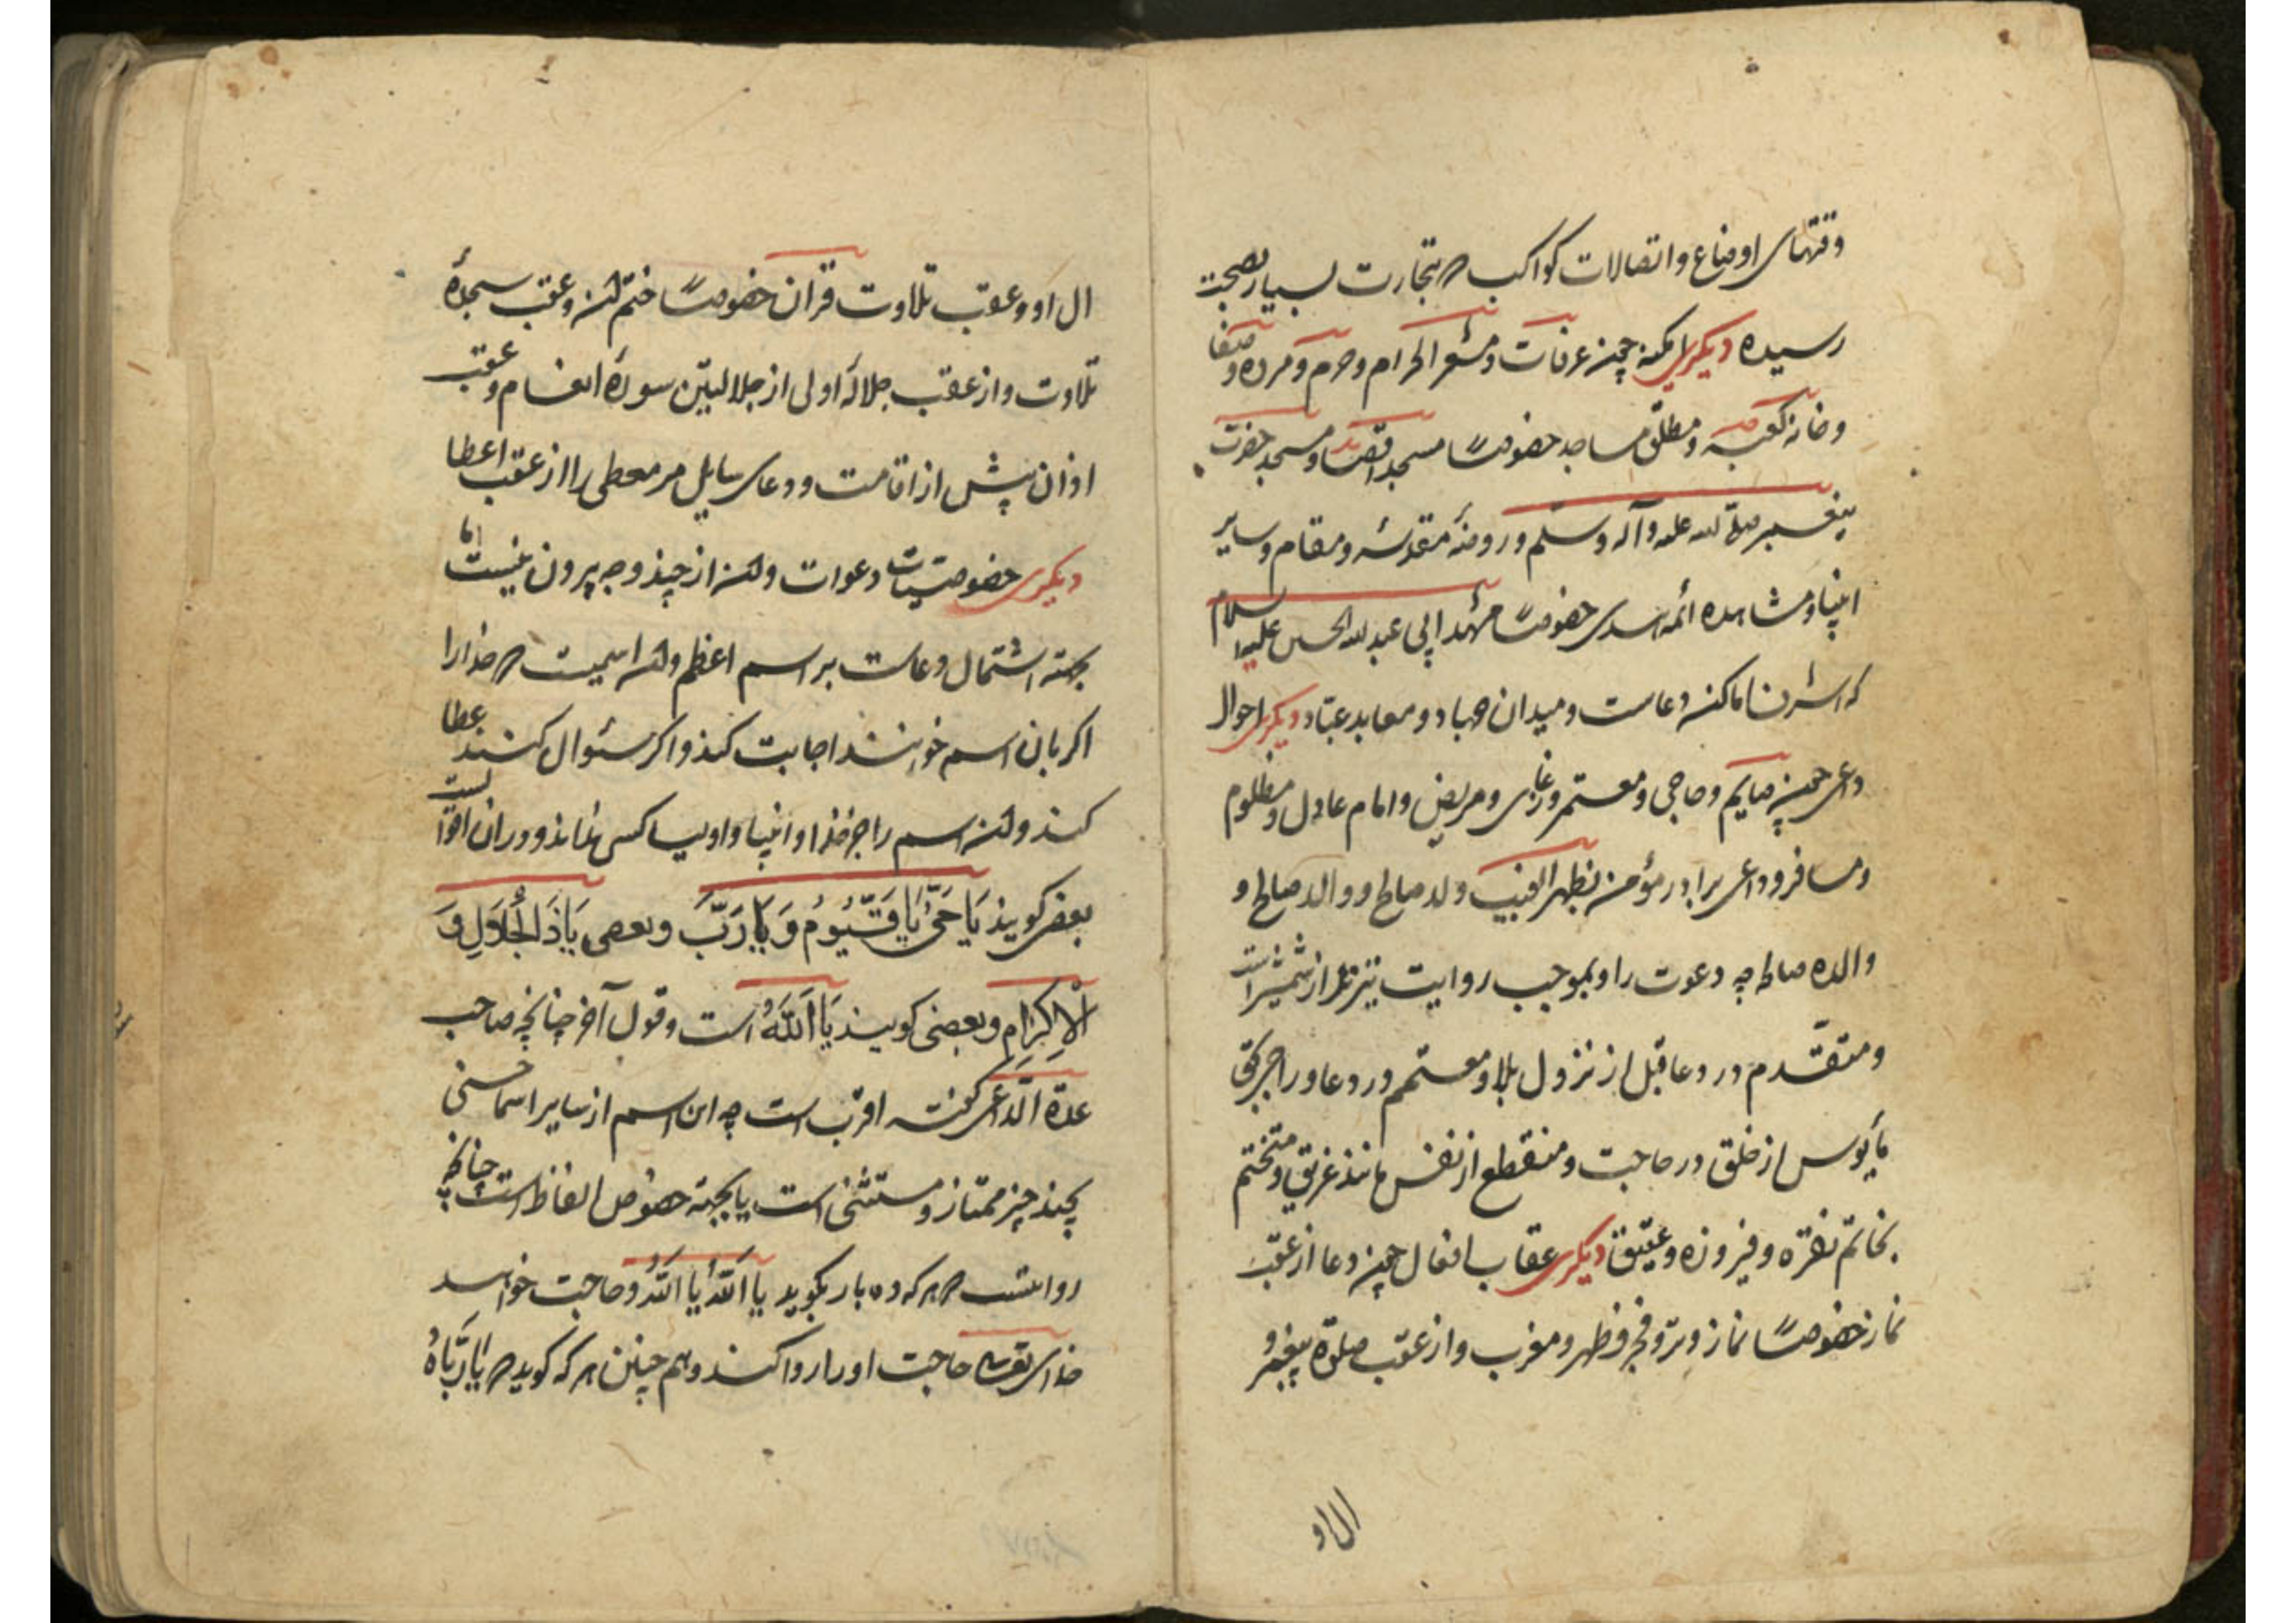 وقتهای اوضاع و اتصالات کواکب که بتجارت بسیار بصحت
رسیده دیگری امکنه چون عرفات و مشعر الحرام و حرم و مروه و صفا
و خانه کعبه و مطلق مساجد خصوصاً مسجد اقصا و مسجد حضرت
پیغمبر صلی الله علیه وآله وسلم و روضهٔ مقدسه و مقام و سایر
انبیا و مشاهده ائمه هدی خصوصاً مشهد ابی عبدالله الحسین علیه السلام
که اشرف اماکنه دعاست و میدان جهاد و معابد عبّاد دیگری احوال
داعی چون صایم و حاجی و معتمر و غازی و مریض و امام عادل و مظلوم
و مسافر و داعی برادر مؤمن بظهر الغیب ولد صالح و والد صالح و
والده صالحه چه دعوت را و بموجب روایت تیزتر از شمشیر است
و متقدّم در دعا قبل از نزول بلا و معتمر در دعا و را جر کتی
مأیوس از خلق در حاجت و منقطع از نفس مانند غریق و متختم
بخاتم نقره و فیروزه و عقیق دیگری عقاب افعال چون دعا از عقب
نماز خصوصاً نماز وتر و فجر و ظهر و مغرب و از عقب صلوة پیغمبر و
ال او
ال او و عقب تلاوت قران خصوصاً ختم آن و عقب سجدهٔ
تلاوت و از عقب جلالهٔ اولی از جلالتین سورهٔ انعام و عقب
اذان پیش از اقامت و دعای سایل مر معطی را از عقب اعطا
دیگری خصوصیات دعوات و آن از چند وجه بیرون نیست اما
بجهته اشتمال دعاست بر اسم اعظم و آن اسمیست که خدا را
اگر بان اسم خوانند اجابت کند و اگر سئوال کنند عطا
کند و آن اسم را جز خدا و انبیا و اولیا کس نداند و در ان اقوالست
بعضی گویند یَا حَیُّ یَا قَیُّومُ وَ یَا رَبَّ و بعضی یَا ذَا الْجَلَالِ وَ
الْاِکْرَامِ و بعضی گویند یَا اَللّٰهُ است و قول آخر چنانچه صاحب
عدة الدّاعی گفته اقرب است چه این اسم از سایر اسما حسنی
بچند چیز ممتاز و مستثنی است یا بجهته خصوص الفاظ است چنانچه
روایتست که هر که ده بار بگوید یا اَللّٰهُ یَا اَللّٰهُ و حاجت خواهد
خدای تعالی حاجت او را روا کند و هم چنین هر که گوید که یَا رَبَّاهُ